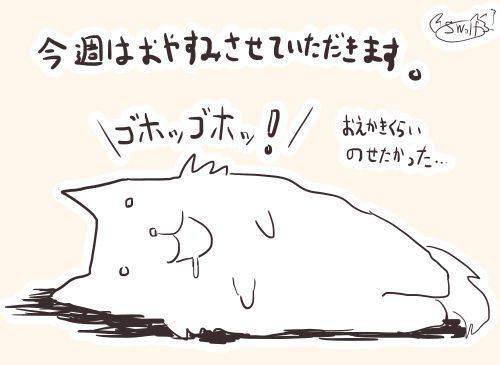 今週はおやすみさせていただきます。
ゴホッゴホッ!
おえかきくらい
のせたかった…